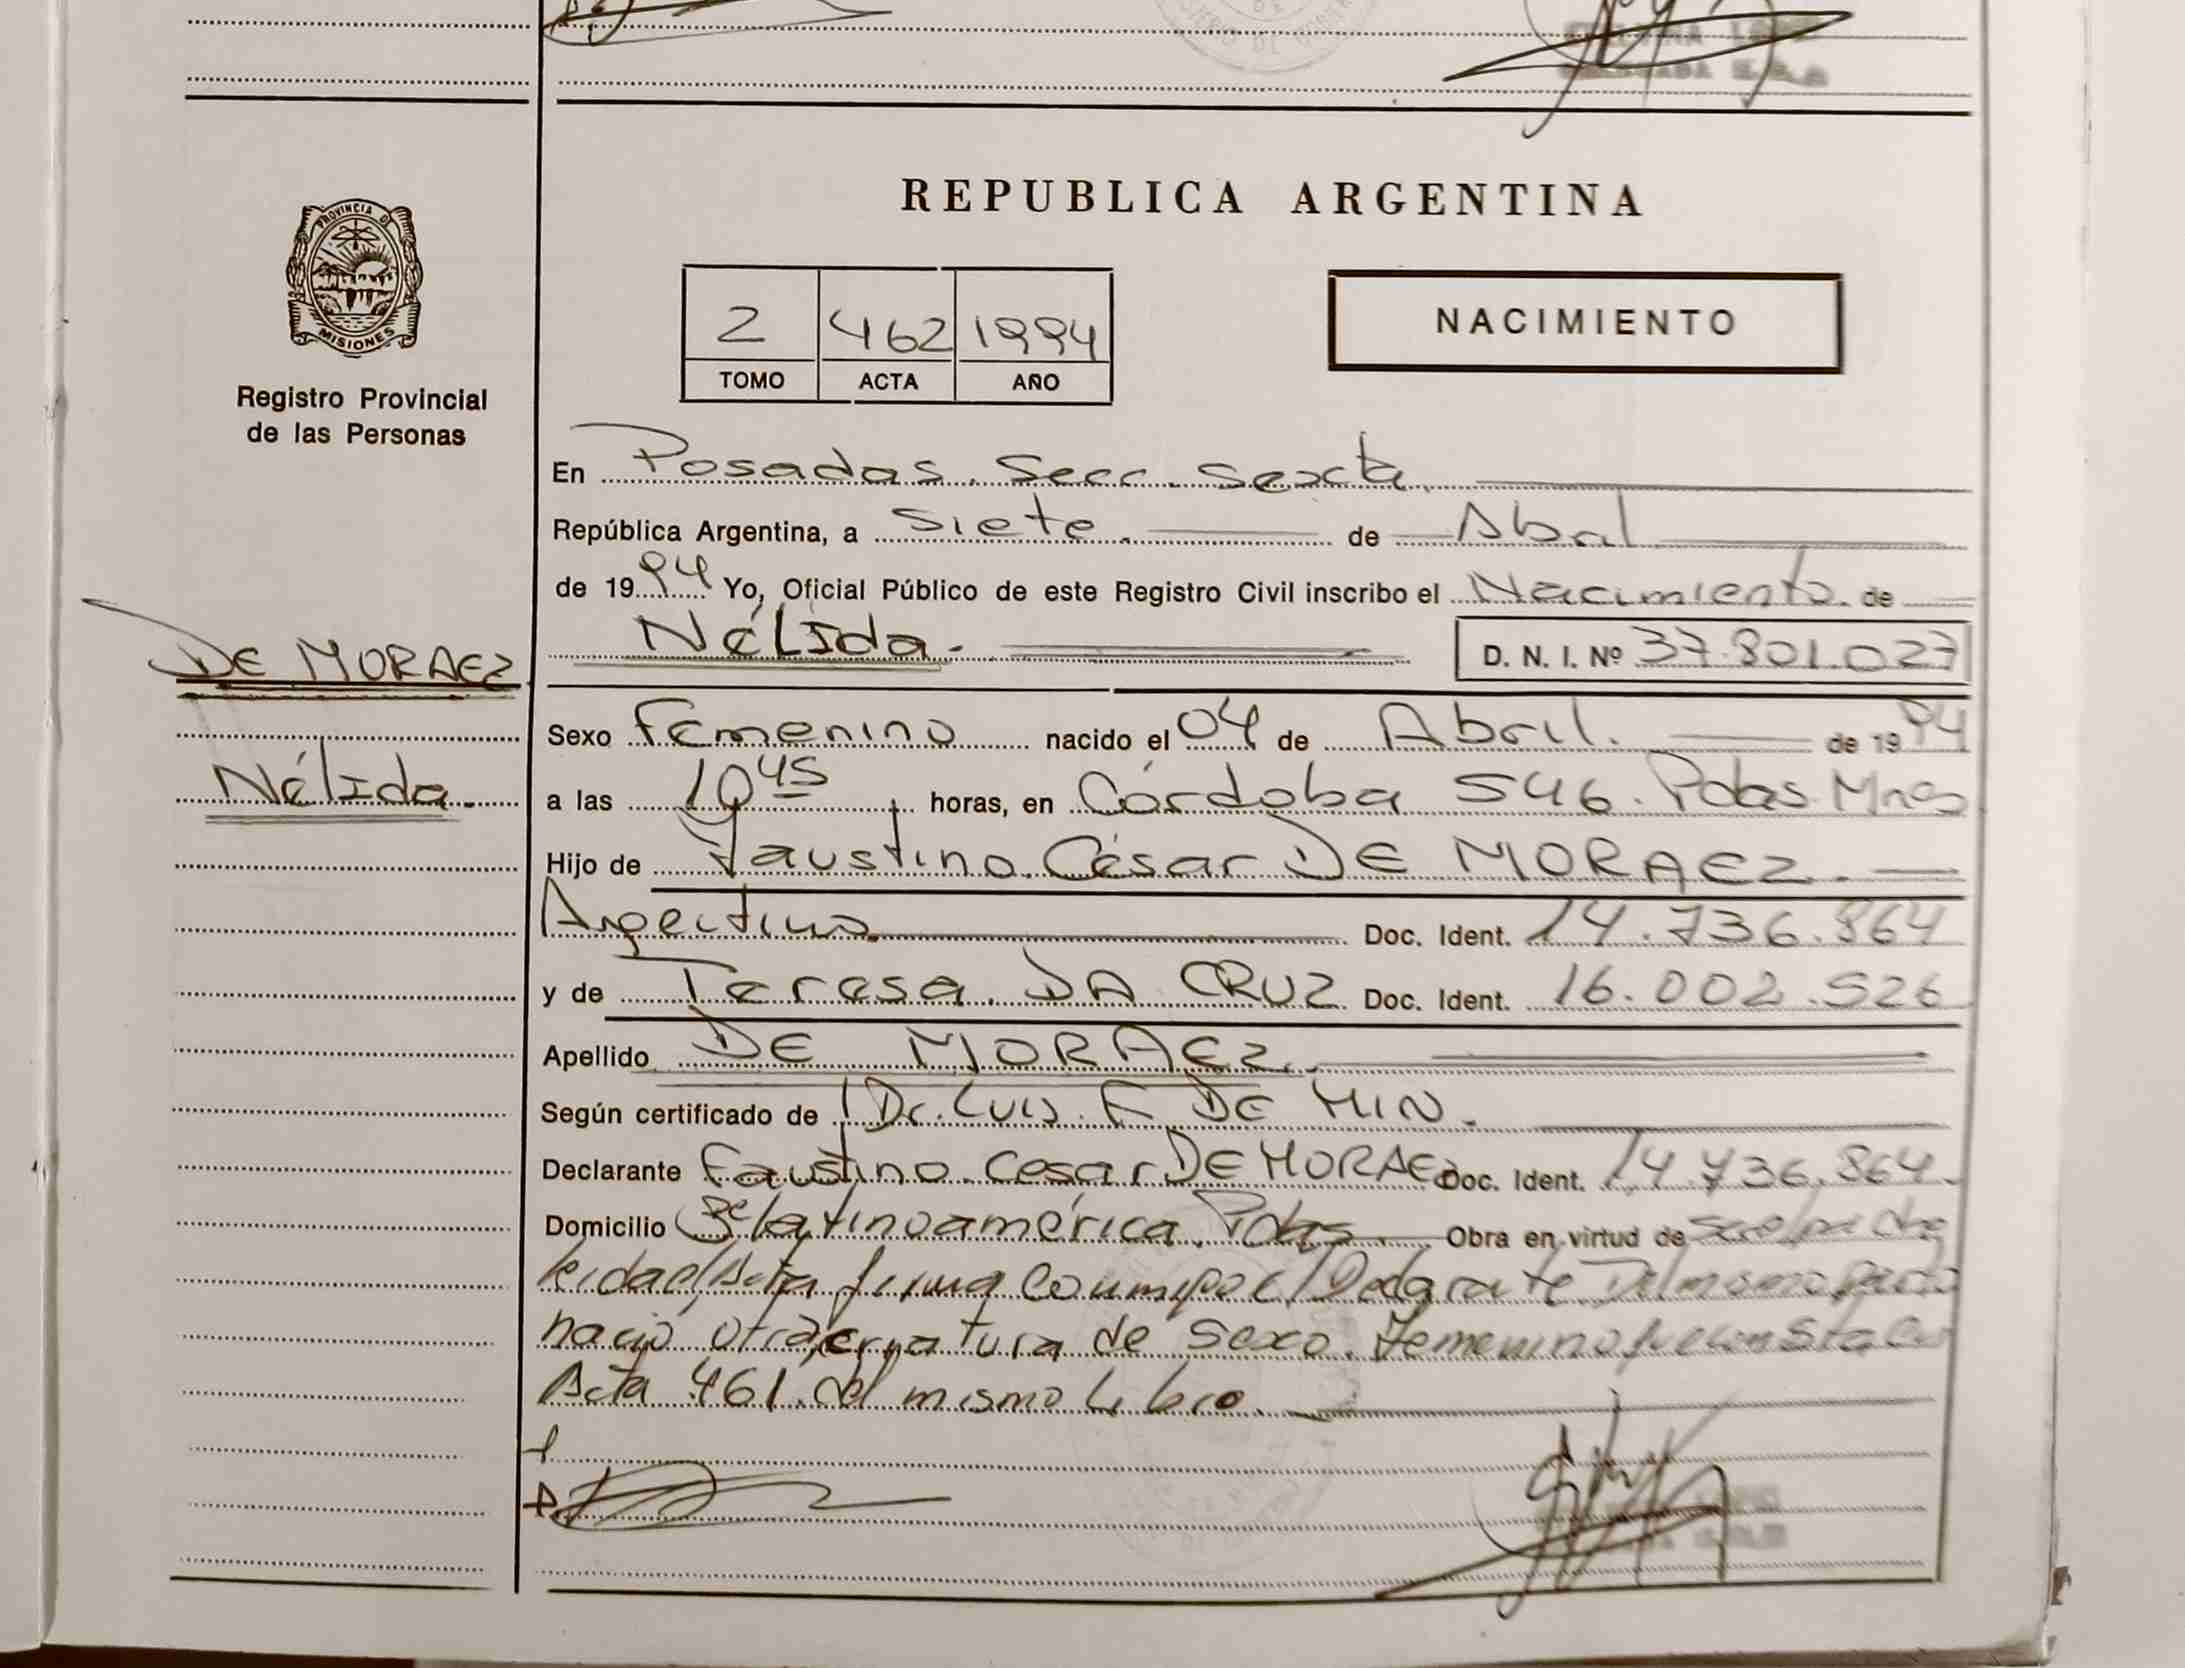 REPUBLICA ARGENTINA
PROVINCIA D
MISIONES
Registro Provincial
de las Personas
2 462 1994
TOMO ACTA AÑO
NACIMIENTO
En Posadas. Secc. Sexta.
República Argentina, a siete. de Abril
de 1994 Yo, Oficial Público de este Registro Civil inscribo el Nacimiento. de
Nélida. D. N. I. Nº 37.801.027
DE MORAEZ
Nélida.
Sexo Femenino nacido el 04 de Abril. de 1994
a las 10 45 horas, en Córdoba 546. Pdas Mnes
Hijo de Faustino. César DE MORAEZ.
Argentino Doc. Ident. 14.736.864
y de Teresa. DA CRUZ Doc. Ident. 16.002.526
Apellido DE MORAEZ.
Según certificado de Dr. Luis. F DE MIN.
Declarante Faustino. Cesar DE MORAEZ Doc. Ident. 14.736.864.
Domicilio Bº latinoamérica. Pdas. Obra en virtud de
leida el Acta firma Del mismo parto
nació otra criatura de sexo. Femenino
Acta 461. del mismo Libro.